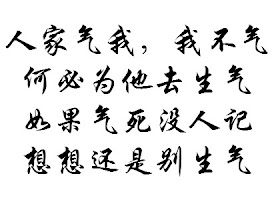 人家气我，我不气
何必为他去生气
如果气死没人记
想想还是别生气